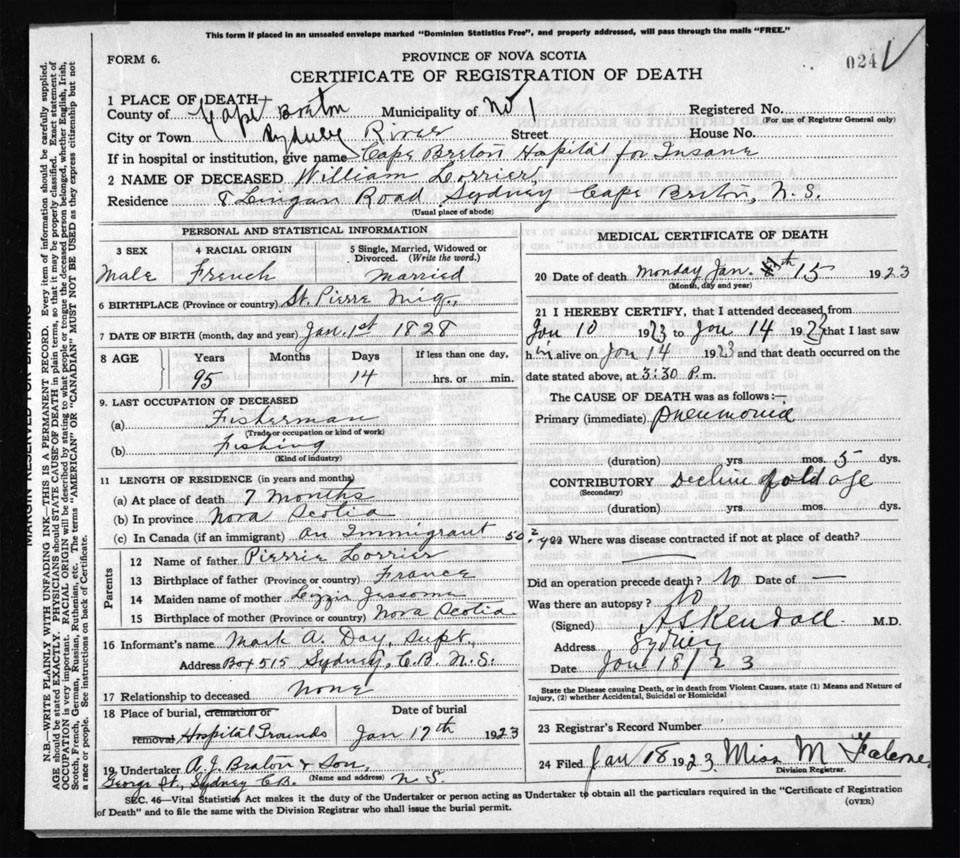 This form if placed in an unsealed envelope marked "Dominion Statistics Free", and properly addressed, will pass through the mails "FREE."
FORM 6.
PROVINCE OF NOVA SCOTIA
024
CERTIFICATE OF REGISTRATION OF DEATH
1 PLACE OF DEATH
County of Cape Breton Municipality of No 1 Registered No.
(For use of Registrar General only)
City or Town Sydney River Street House No.
If in hospital or institution, give name Cape Breton Hospital for Insane
2 NAME OF DECEASED William Lorrier
Residence 8 Lingan Road Sydney Cape Breton, N.S.
(Usual place of abode)
PERSONAL AND STATISTICAL INFORMATION
3 SEX 4 RACIAL ORIGIN 5 Single, Married, Widowed or Divorced. (Write the word.)
Male French Married
6 BIRTHPLACE (Province or country) St. Pierre Miq.,
7 DATE OF BIRTH (month, day and year) Jan. 1st 1828
8 AGE Years Months Days If less than one day,
95 14 hrs. or min.
9. LAST OCCUPATION OF DECEASED
(a) Fisherman
(Trade or occupation or kind of work)
(b) Fishing
(Kind of industry)
11 LENGTH OF RESIDENCE (in years and months)
(a) At place of death 7 Months
(b) In province Nova Scotia
(c) In Canada (if an immigrant) an Immigrant 50 ? yrs
Parents
12 Name of father Pierrie Lorrier
13 Birthplace of father (Province or country) France
14 Maiden name of mother Lizzie Jessome
15 Birthplace of mother (Province or country) Nova Scotia
16 Informant's name Mark A. Day, Supt.
Address Box 515 Sydney, C.B. N.S.
17 Relationship to deceased None
18 Place of burial, cremation or Date of burial
removal Hospital Grounds Jan 17th 1923
19 Undertaker A.J. & Son,
George St., Sydney C.B. (Name and address) N.S.
MEDICAL CERTIFICATE OF DEATH
20 Date of death Monday Jan. 15 1923
(Month, day and year)
21 I HEREBY CERTIFY, that I attended deceased from
Jan 10 1923 to Jan 14 1923 that I last saw
him alive on Jan 14 1923 and that death occurred on the
date stated above, at 3:30 P.m.
The CAUSE OF DEATH was as follows:—
Primary (immediate) Pneumonia
(duration) yrs mos. 5 dys.
CONTRIBUTORY Decline of old age
(Secondary)
(duration) yrs. mos. dys.
Where was disease contracted if not at place of death?
Did an operation precede death? No Date of —
Was there an autopsy? No
(Signed) AS Kendall M.D.
Address Sydney
Date Jan 18/23
State the Disease causing Death, or in death from Violent Causes, state (1) Means and Nature of Injury, (2) whether Accidental, Suicidal or Homicidal
23 Registrar's Record Number
24 Filed Jan 18 1923. Miss M
Division Registrar.
SEC. 46—Vital Statistics Act makes it the duty of the Undertaker or person acting as Undertaker to obtain all the particulars required in the "Certificate of Registration
of Death" and to file the same with the Division Registrar who shall issue the burial permit. (OVER)
MARGIN RESERVED FOR BINDING
N.B. WRITE PLAINLY WITH UNFADING INK—THIS IS A PERMANENT RECORD. Every item of information should be carefully supplied.
AGE should be stated EXACTLY. PHYSICIANS should STATE CAUSE OF DEATH in plain terms, so that it may be properly classified. Exact statement of
OCCUPATION is very important. RACIAL ORIGIN will be described by stating to what people or tongue the deceased person belonged, whether English, Irish,
Scotch, French, German, Russian, Ruthenian, etc. The terms "AMERICAN" OR "CANADIAN" MUST NOT BE USED as they express citizenship but not
a race or people. See instructions on back of Certificate.